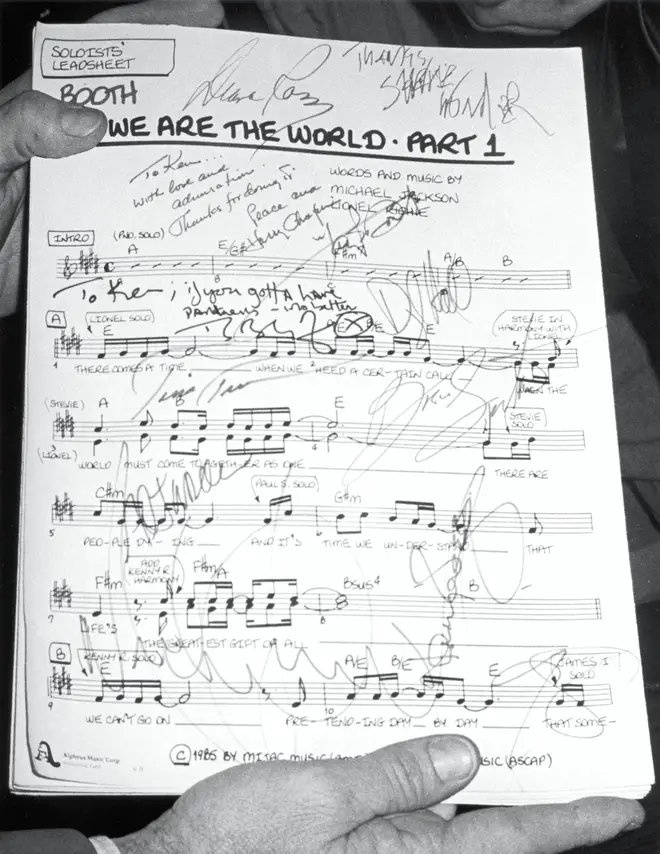 SOLOISTS'
LEADSHEET
BOOTH
THANKS
WE ARE THE WORLD · PART 1
To Ken...
with love and
admiration
Thanks for doing it
Peace and
WORDS AND MUSIC BY
MICHAEL JACKSON
LIONEL RICHIE
INTRO
(PNO. SOLO)
A E/G# F#m A/B B
To Ken; if you gotta have
partners - no better
A
(LIONEL SOLO)
E E
STEVIE IN
HARMONY WITH
LIONEL
1 2
THERE COMES A TIME WHEN WE HEED A CER-TAIN CALL WHEN THE
(STEVIE)
A B E
(STEVIE
SOLO
(LIONEL)
3 4
WORLD MUST COME TOGETH-ER AS ONE THERE ARE
C#m
(PAUL S. SOLO)
G#m
5 6
PEO-PLE DY-ING AND IT'S TIME WE UN-DER-STAND THAT
F#m
ADD
KENNY R.
HARMONY
F#m A Bsus4 B
7 8
THE GREAT-EST GIFT OF ALL
B
KENNY R. SOLO
E A/E B/E E
JAMES I.
SOLO
9 10
WE CAN'T GO ON PRE-TEND-ING DAY BY DAY THAT SOME-
Alpheus Music Corp
© 1985 BY MIJAC MUSIC
MUSIC (ASCAP)